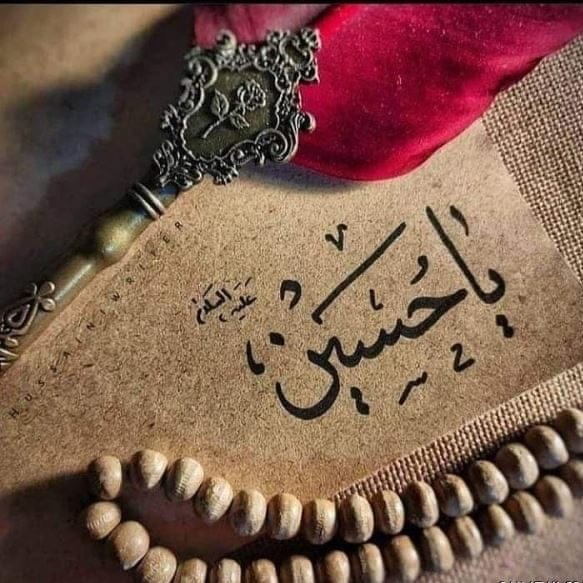 يا حُسَين
عليه السلام
HUSSAINIWRITER